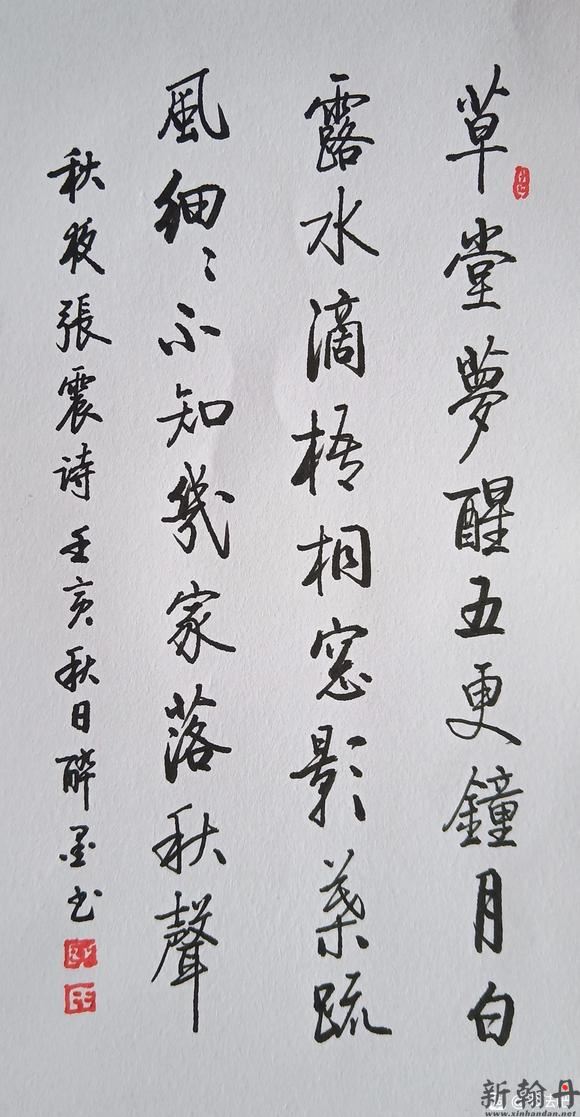 草堂夢醒五更鐘月白
露水滴梧桐窓影葉疏
風細〻不知幾家落秋聲
秋夜張震诗壬亥秋日醉墨书
新翰丹
www.xinhandan.net